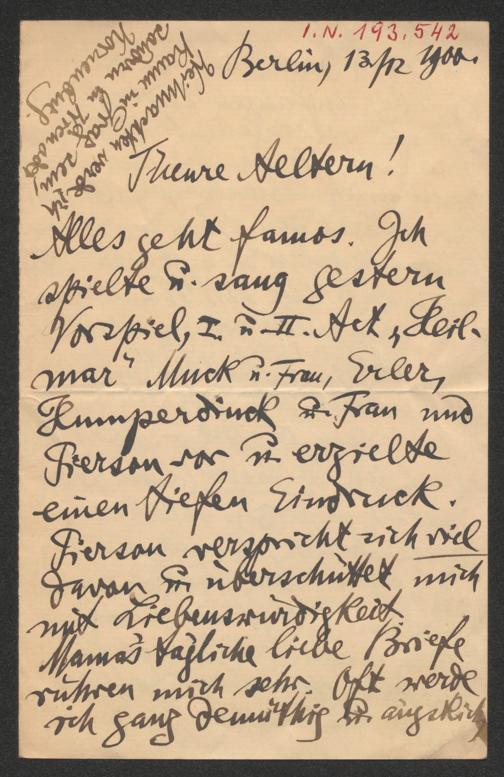 I.N. 193.542
Berlin, 13/12 1900.
Weihnachten werde ich
kaum in Graz sein,
sondern zu
Kornenburg.
Theure Aeltern!
Alles geht famos. Ich
spielte u. sang gestern
Vorspiel, I. u. II. Act „Heil-
mar" Muck u. Frau, Erler,
Humperdinck u. Frau und
Pierson vor u. erzielte
einen tiefen Eindruck.
Pierson verspricht sich viel
davon u. überschüttet mich
mit Liebenswürdigkeit.
Mama's tägliche liebe Briefe
rühren mich sehr. Oft werde
ich ganz demüthig u. ängstlich